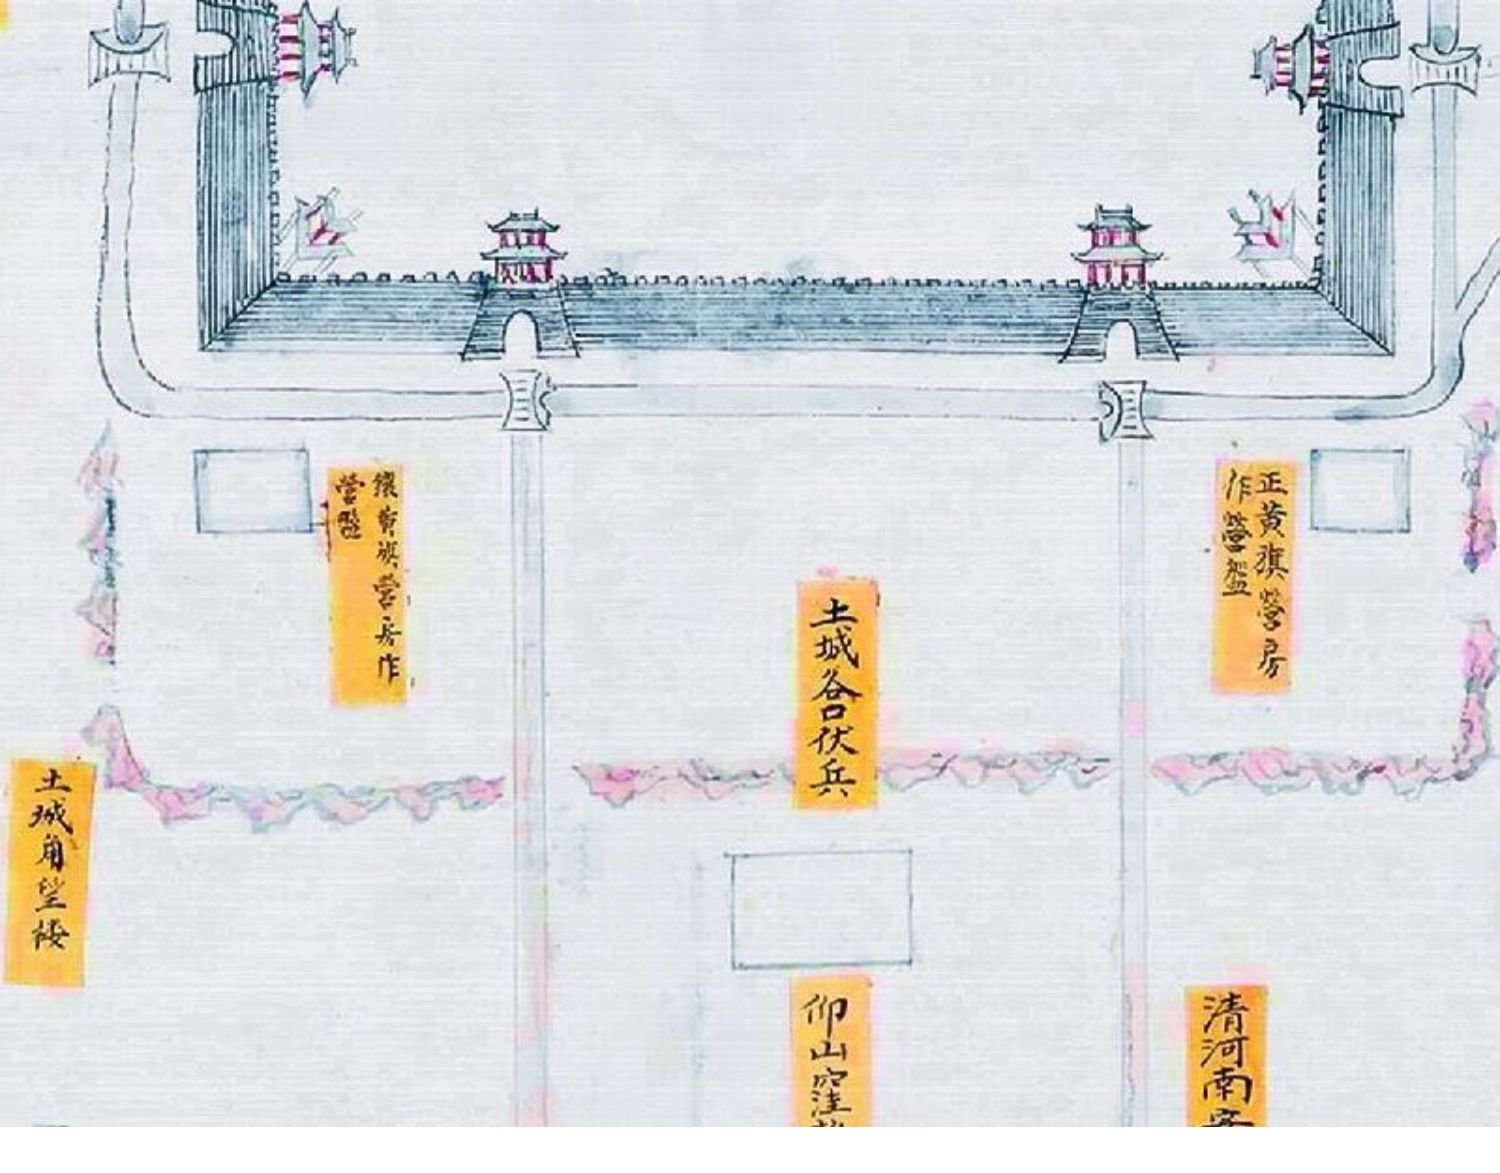 正黃旗營房
作營盤
鑲黃旗營房作
營盤
土城谷口伏兵
土城角望楼
清河南
仰山窪